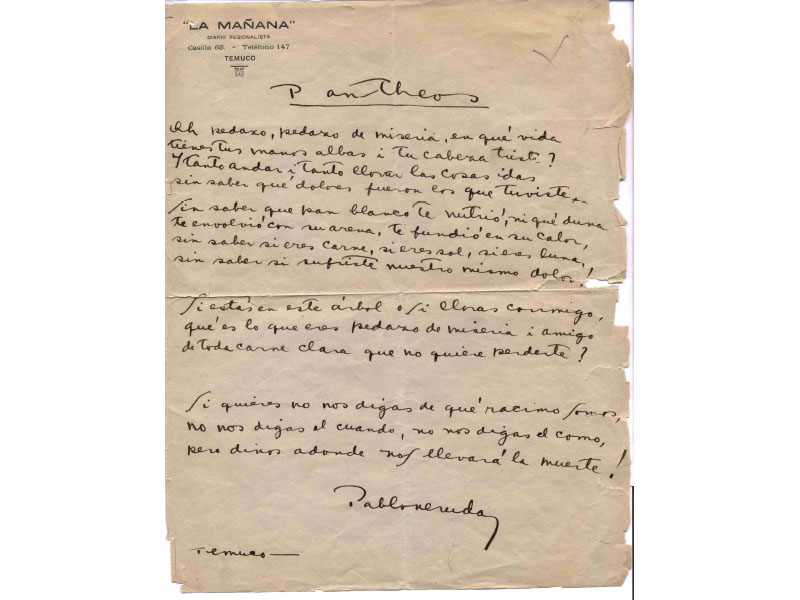 "LA MAÑANA"
DIARIO REGIONALISTA
Casilla 65. - Teléfono 147
TEMUCO
Pantheos
Oh pedazo, pedazo de miseria, en qué vida
tienes tus manos albas i tu cabeza triste?
Y tanto andar i tanto llorar las cosas idas
sin saber qué dolores fueron los que tuviste...
Sin saber que pan blanco te nutrió, ni qué duna
te envolvió con su arena, te fundió en su calor,
sin saber si eres carne, si eres sol, si eres luna,
sin saber si sufriste nuestro mismo dolor!
Si estás en este árbol o si lloras conmigo,
qué es lo que eres pedazo de miseria i amigo
de toda carne clara que no quiere perderte?
Si quieres no nos digas de qué racimo somos,
no nos digas el cuando, no nos digas el como,
pero dinos adonde nos llevará la muerte!
Pablo neruda
Temuco—